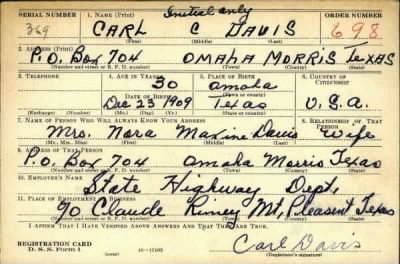 SERIAL NUMBER 1. NAME (Print) Initial only ORDER NUMBER
369 CARL C DAVIS 698
(First) (Middle) (Last)
2. ADDRESS (Print)
P.O. Box 704 OMAHA MORRIS TEXAS
(Number and street or R. F. D. number) (Town) (County) (State)
3. TELEPHONE 4. AGE IN YEARS 5. PLACE OF BIRTH 6. COUNTRY OF CITIZENSHIP
30 Omaha
DATE OF BIRTH (Town or county)
Dec 23 1909 Texas U.S.A.
(Exchange) (Number) (Mo.) (Day) (Yr.) (State or country)
7. NAME OF PERSON WHO WILL ALWAYS KNOW YOUR ADDRESS 8. RELATIONSHIP OF THAT PERSON
Mrs. Nora Maxine Davis Wife
(Mr., Mrs., Miss) (First) (Middle) (Last)
9. ADDRESS OF THAT PERSON
P.O. Box 704 Omaha Morris Texas
(Number and street or R. F. D. number) (Town) (County) (State)
10. EMPLOYER'S NAME
State Highway Dept.
11. PLACE OF EMPLOYMENT OR BUSINESS
% Claude Mt. Pleasent Texas
(Number and street or R. F. D. number) (Town) (County) (State)
I AFFIRM THAT I HAVE VERIFIED ABOVE ANSWERS AND THAT THEY ARE TRUE.
REGISTRATION CARD
D. S. S. Form 1 (over) 16—17105 Carl Davis
(Registrant's signature)